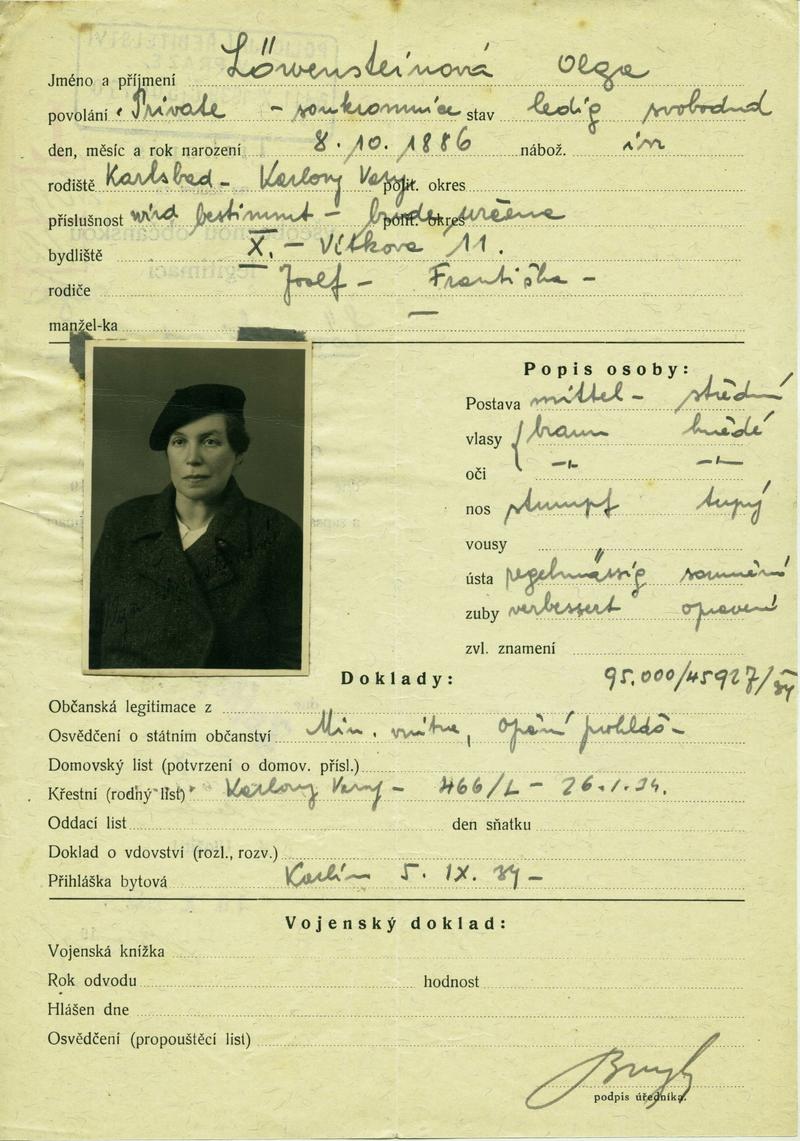 Jméno a příjmení Löwensteinová Olga
povolání Private - soukromnice stav ledig svobodná
den, měsíc a rok narození 8. 10. 1886 nábož. isr
rodiště Karlsbad - Karlovy Vary polit. okres
příslušnost wird bestimmt - bude určena polit. okres
bydliště X. - Vítkova 11.
rodiče Josef - Františka -
manžel-ka —
Popis osoby:
Postava mittel - střední
vlasy braun hnědé
oči -"- -"-
nos stumpf tupý
vousy
ústa regelmässig souměrná
zuby verbessert opravené
zvl. znamení
Doklady: 95.000/45927/39
Občanská legitimace z
Osvědčení o státním občanství Min. vnitra,
Domovský list (potvrzení o domov. přísl.)
Křestní (rodný list) Karlovy Vary - 466/L - 26.1.34.
Oddací list den sňatku
Doklad o vdovství (rozl., rozv.)
Přihláška bytová Karlín 5. IX. 39 -
Vojenský doklad:
Vojenská knížka
Rok odvodu hodnost
Hlášen dne
Osvědčení (propouštěcí list)
podpis úředníka.